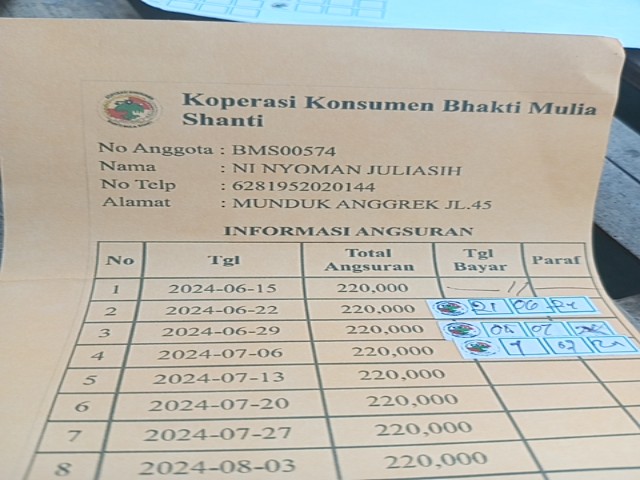 Koperasi Konsumen Bhakti Mulia
Shanti
No Anggota : BMS00574
Nama : NI NYOMAN JULIASIH
No Telp : 6281952020144
Alamat : MUNDUK ANGGREK JL.45
INFORMASI ANGSURAN
No Tgl Total Angsuran Tgl Bayar Paraf
1 2024-06-15 220,000
2 2024-06-22 220,000 21 06 24
3 2024-06-29 220,000
4 2024-07-06 220,000
5 2024-07-13 220,000
6 2024-07-20 220,000
7 2024-07-27 220,000
8 2024-08-03 220,000